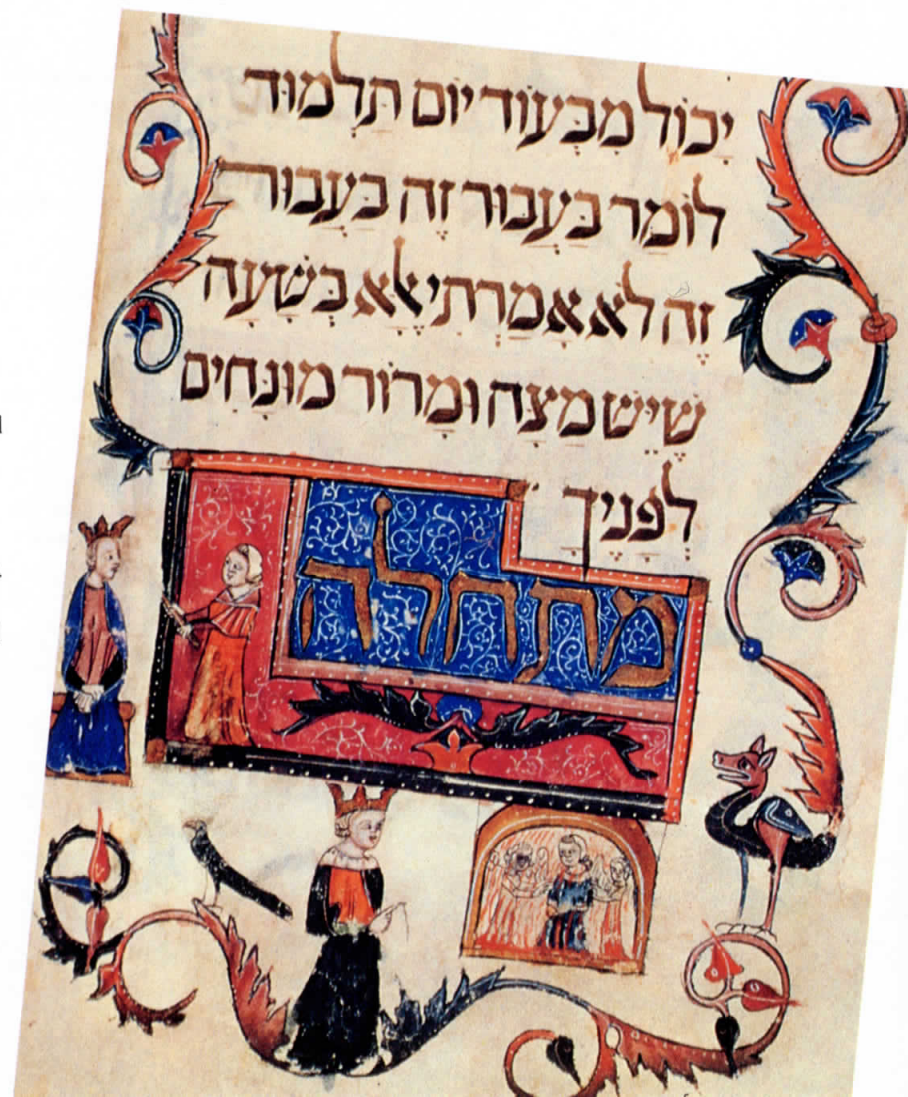 יָכוֹל מִבְּעוֹד יוֹם תַּלְמוּד
לוֹמַר בַּעֲבוּר זֶה בַּעֲבוּר
זֶה לֹא אָמַרְתִּי אֶלָּא בְּשָׁעָה
שֶׁיֵּשׁ מַצָּה וּמָרוֹר מוּנָּחִים
לְפָנֶיךָ
מתחלה